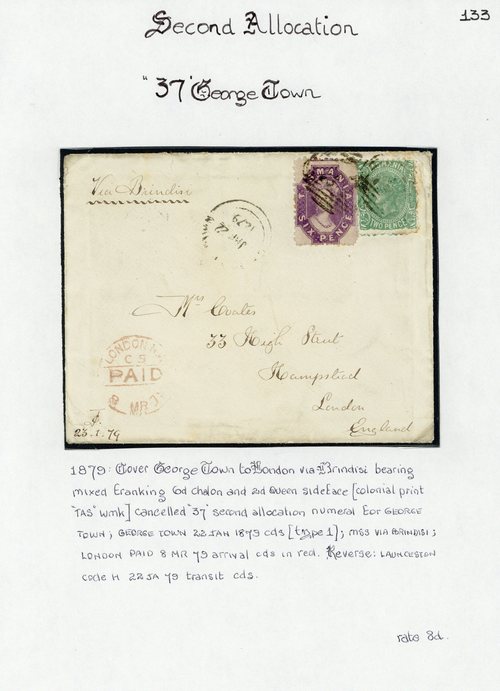 133
Second Allocation
"37" George Town
Via Brindisi
MANIA
SIX PENCE
TWO PENCE
JAN 22
1879
Mrs Coates
33 High Street
Hampstead
London
England
LONDON
PAID
MR
23.1.79
1879: Cover George Town to London via Brindisi bearing
mixed franking 6d chalon and 2d Queen sideface [colonial print
"TAS" wmk] cancelled "37" second allocation numeral for GEORGE
TOWN; GEORGE TOWN 22 JAN 1879 cds [type 1]; mss VIA BRINDISI;
LONDON PAID 8 MR 79 arrival cds in red. Reverse: LAUNCESTON
code H 22 JA 79 transit cds.
rate 8d.